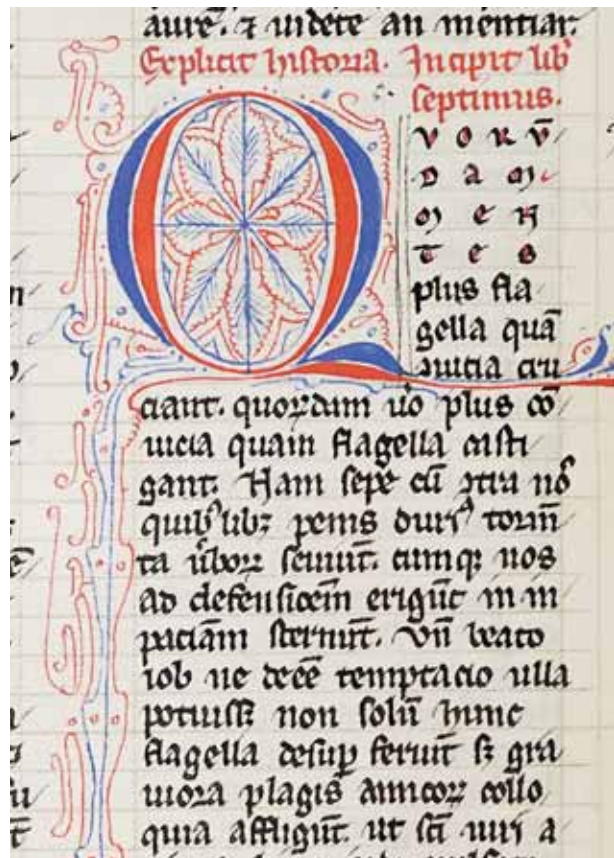 aurē. ⁊ uidete an mentiar.
Explicit historia. Incipit lib'
septimus.
QVORV̄
DAM
MEN
TES
plus fla
gella quā
ꝯuicia cru
ciant. quorꝛdam u̾o plus cō
uicia quam flagella casti
gant. Nam sepe cū ꝯtra nos
quibꝰlibꝫ penis durꝰ tormn̄
ta ub̾oꝝ seuiūt. cumqꝫ nos
ad defensiōem erigūt in in
paciām sternūt. Vn̄ beato
iob ne deēē temptacio ulla
potuissꝫ non solū hunc
flagella desup feriūt sꝫ gra
uiora plagis amicoꝝ collo
quia affligūt. ut sc̄i uiri a